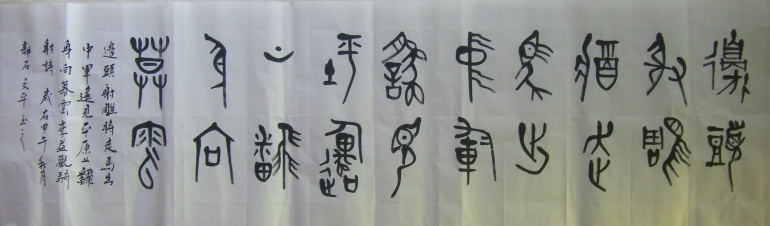 邊頭
射鵰
將走
馬出
中軍
遙見
平原
上翻
身向
莫雲
邊頭射雕將走馬出
中軍遙見平原上翻
身向暮雲李益觀騎
射詩 歲在甲午秋月
離石 文平